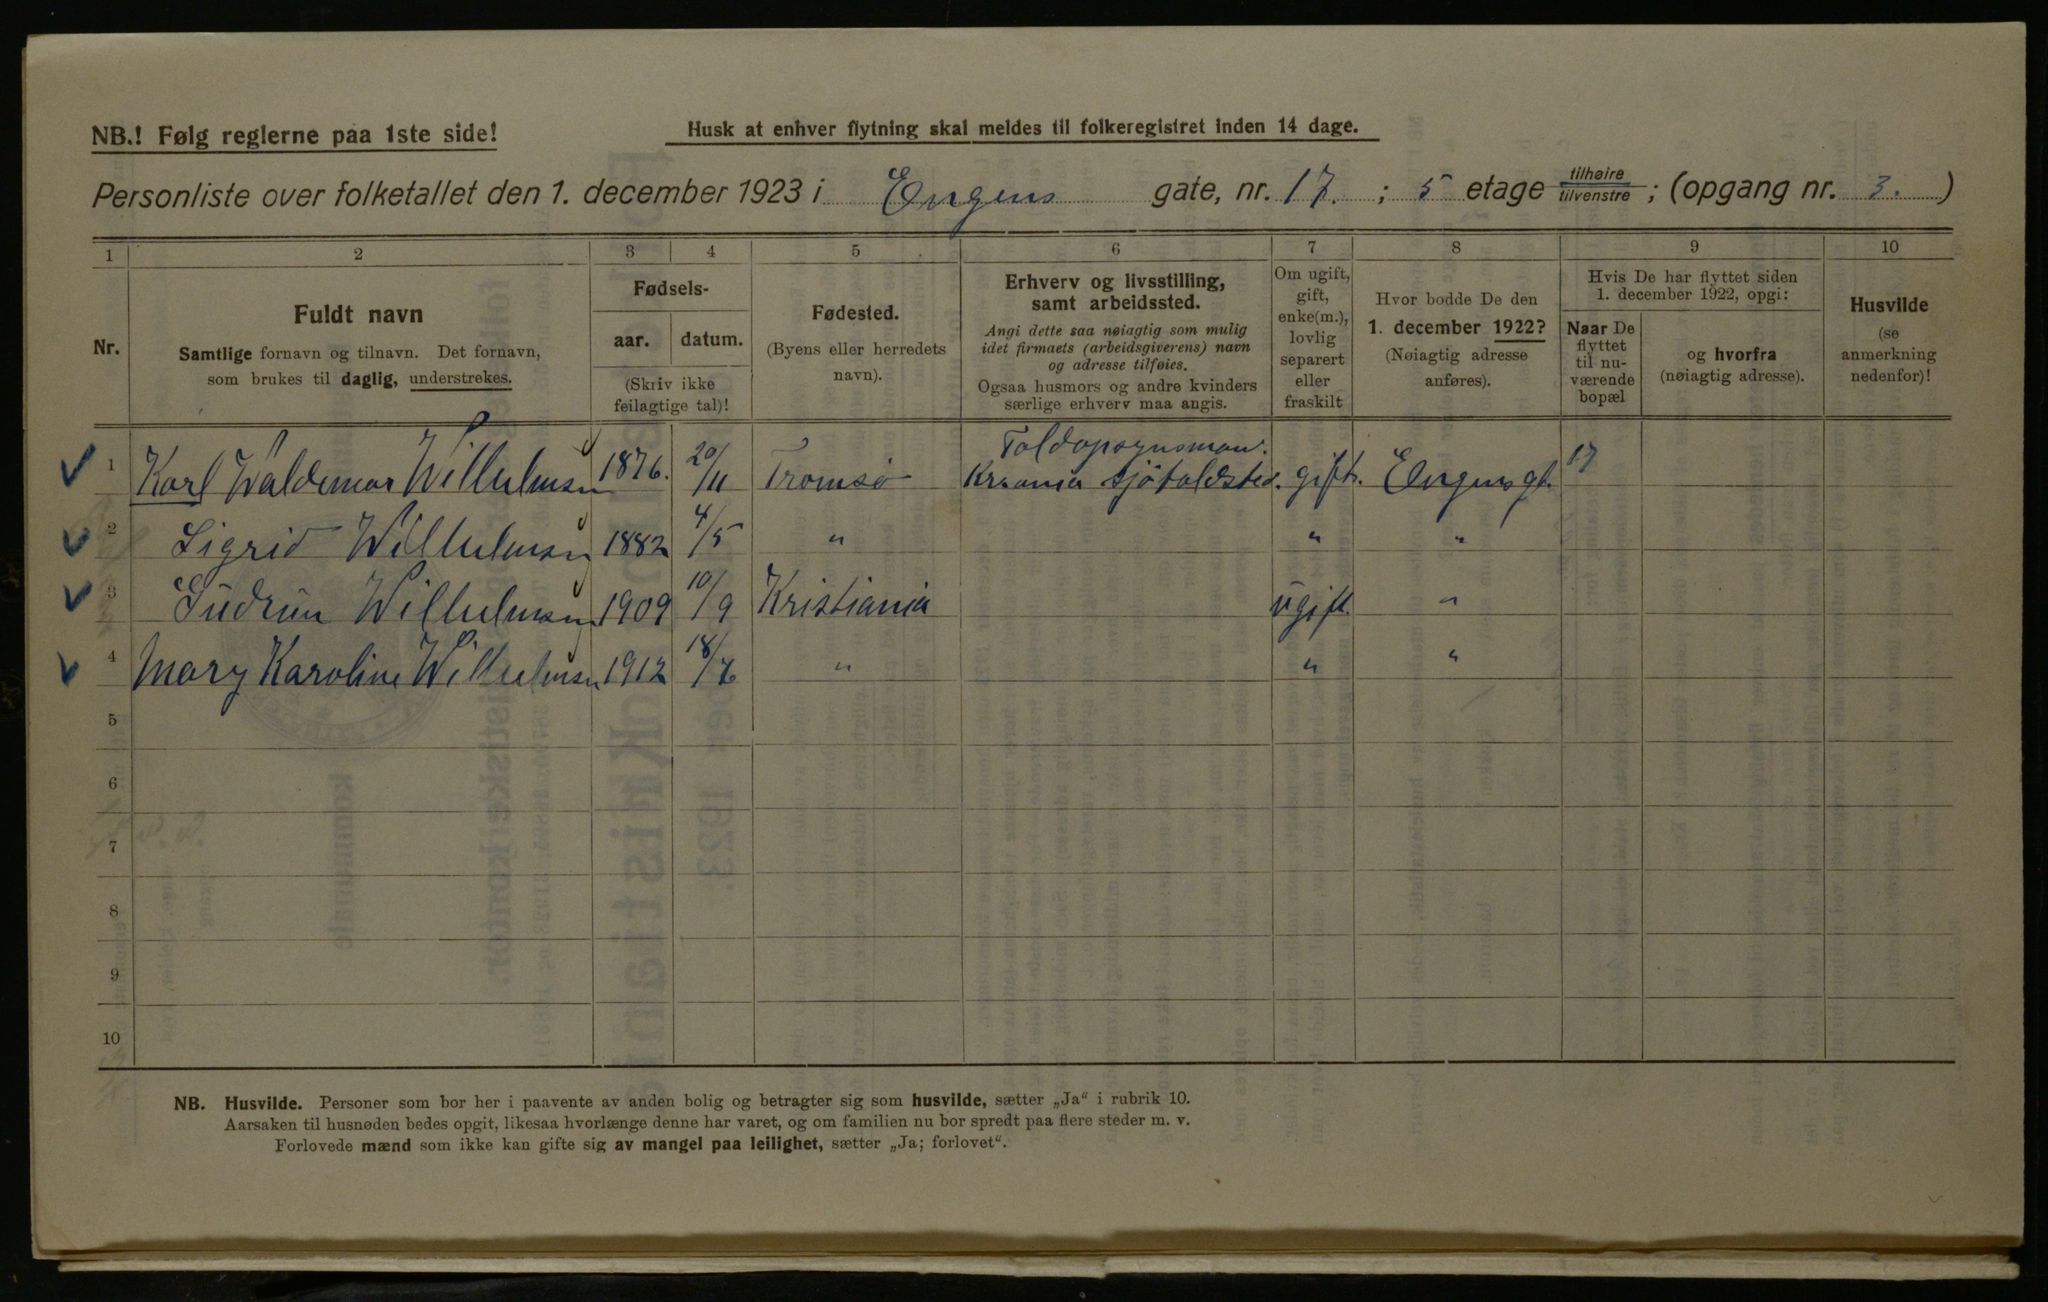 NB.! Følg reglerne paa 1ste side!
Husk at enhver flytning skal meldes til folkeregistret inden 14 dage.
Personliste over folketallet den 1. december 1923 i Engens gate, nr. 17. ; 5 etage tilhøire/tilvenstre ; (opgang nr. 3. )
1 2 3 4 5 6 7 8 9 10
Nr.
Fuldt navn
Samtlige fornavn og tilnavn. Det fornavn,
som brukes til daglig, understrekes.
Fødsels-
aar. datum.
(Skriv ikke
feilagtige tal)!
Fødested.
(Byens eller herredets
navn).
Erhverv og livsstilling,
samt arbeidssted.
Angi dette saa nøiagtig som mulig
idet firmaets (arbeidsgiverens) navn
og adresse tilføies.
Ogsaa husmors og andre kvinders
særlige erhverv maa angis.
Om ugift,
gift,
enke(m.),
lovlig
separert
eller
fraskilt
Hvor bodde De den
1. december 1922?
(Nøiagtig adresse
anføres).
Hvis De har flyttet siden
1. december 1922, opgi:
Naar De
flyttet
til nu-
værende
bopæl
og hvorfra
(nøiagtig adresse).
Husvilde
(se
anmerkning
nedenfor)!
Toldopsynsman.
1 Karl Waldemar Wilhelmsen 1876. 20/11 Tromsø Krania Sjötoldsted. gift. Engensgt. 17
2 Sigrid Wilhelmsen 1882 4/5 " " "
3 Gudrun Wilhelmsen 1909 10/9 Kristiania ugift. "
4 Mary Karoline Wilhelmsen 1912 18/6 " " "
5
6
7
8
9
10
NB. Husvilde. Personer som bor her i paavente av anden bolig og betragter sig som husvilde, sætter „Ja" i rubrik 10.
Aarsaken til husnøden bedes opgit, likesaa hvorlænge denne har varet, og om familien nu bor spredt paa flere steder m. v.
Forlovede mænd som ikke kan gifte sig av mangel paa leilighet, sætter „Ja; forlovet".